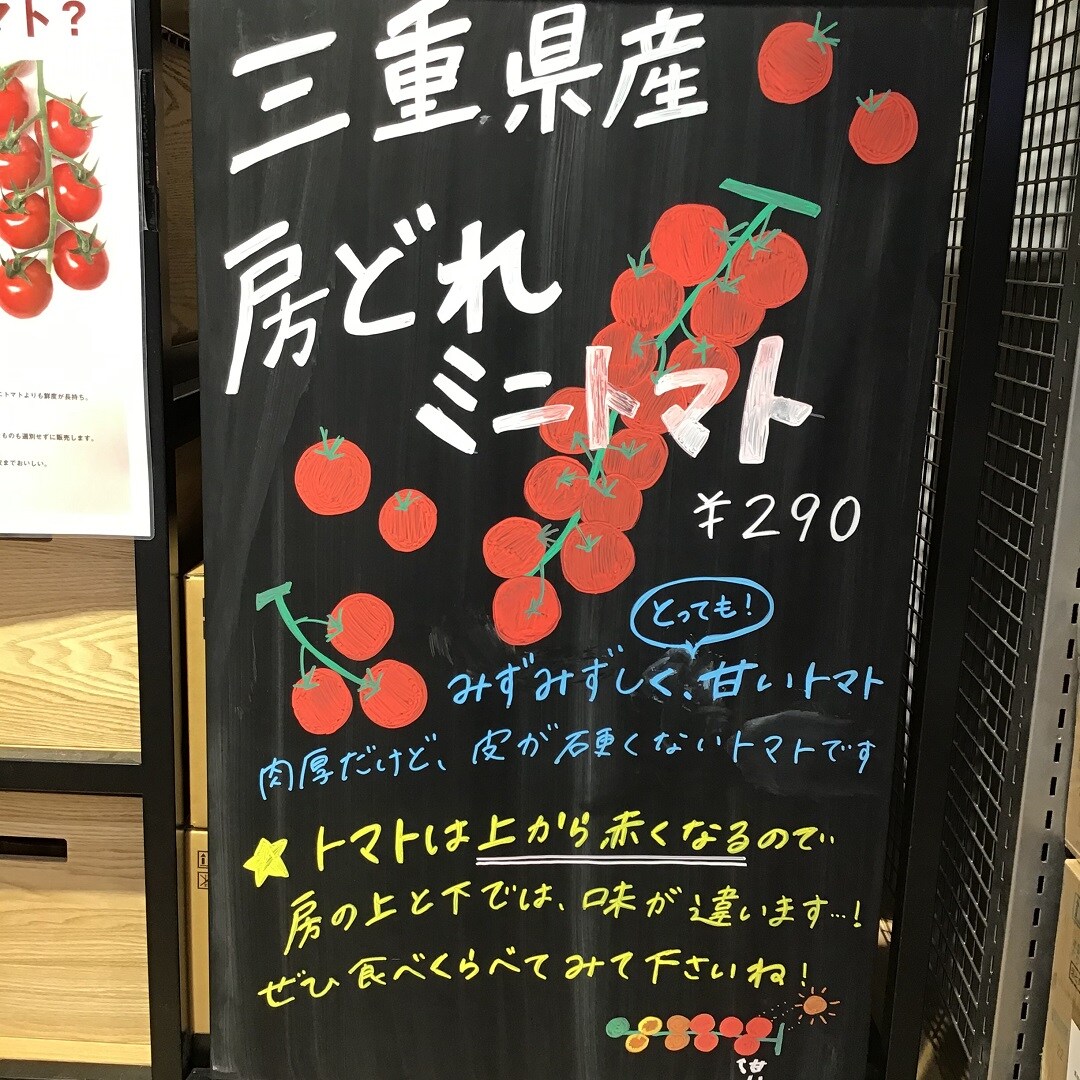 マト?
ニトマトよりも鮮度が長持ち。
ものも選別せずに販売します。
までおいしい。
三重県産
房どれ
ミニトマト
¥290
とっても!
みずみずしく、甘いトマト
肉厚だけど、皮が硬くないトマトです
トマトは上から赤くなるので
房の上と下では、味が違います…!
ぜひ食べくらべてみて下さいね!
甘い